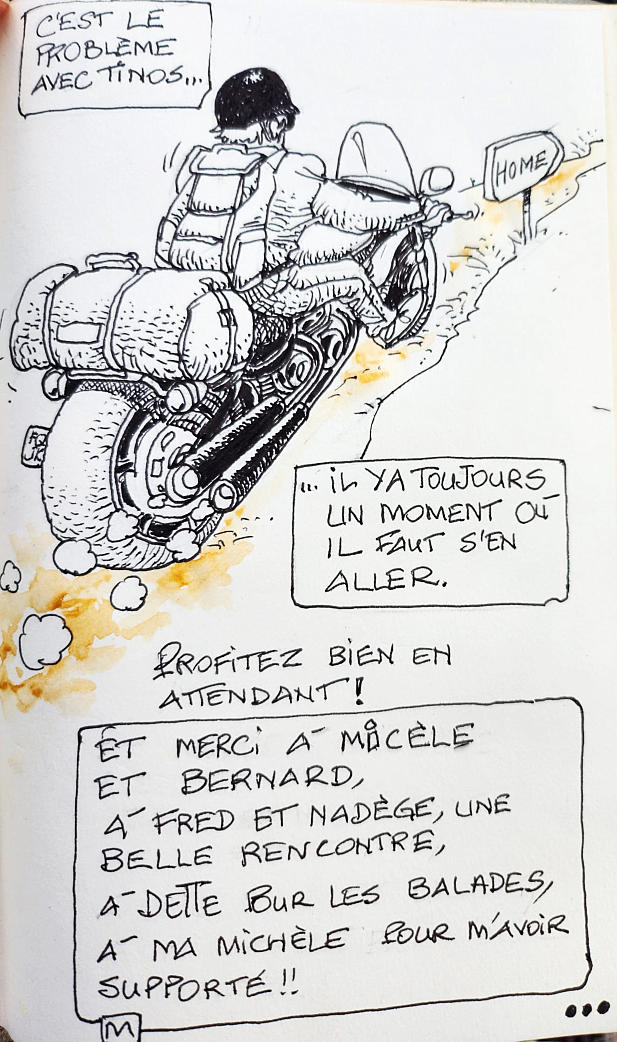 C'EST LE
PROBLÈME
AVEC TINOS...
HOME
... IL Y A TOUJOURS
UN MOMENT OÙ
IL FAUT S'EN
ALLER.
PROFITEZ BIEN EN
ATTENDANT !
ET MERCI À MICÈLE
ET BERNARD,
À FRED ET NADÈGE, UNE
BELLE RENCONTRE,
À DETTE POUR LES BALADES,
À MA MICHÈLE POUR M'AVOIR
SUPPORTÉ !!
M
...